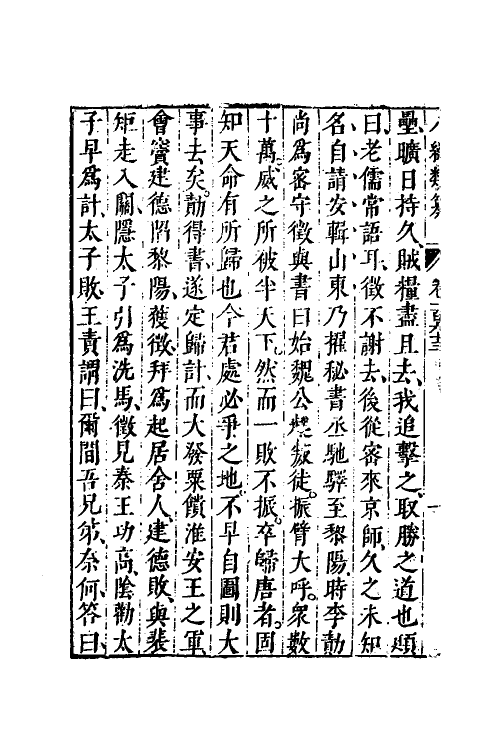 編類纂 卷
壘曠日持久賊糧盡且去我追擊之取勝之道也頲
曰老儒常語耳徵不謝去後從密來京師久之未知
名自請安輯山東乃擢秘書丞馳驛至黎陽時李勣
尚爲密守徵與書曰始魏公起叛徒振臂大呼衆數
十萬威之所被半天下然而一敗不振卒歸唐者固
知天命有所歸也今君處必爭之地不早自圖則大
事去矣勣得書遂定歸計而大發粟饋淮安王之軍
會竇建德陷黎陽獲徵拜爲起居舍人建德敗與裴
矩走入關隱太子引爲洗馬徵見秦王功高陰勸太
子早爲計太子敗王責謂曰爾間吾兄弟奈何答曰